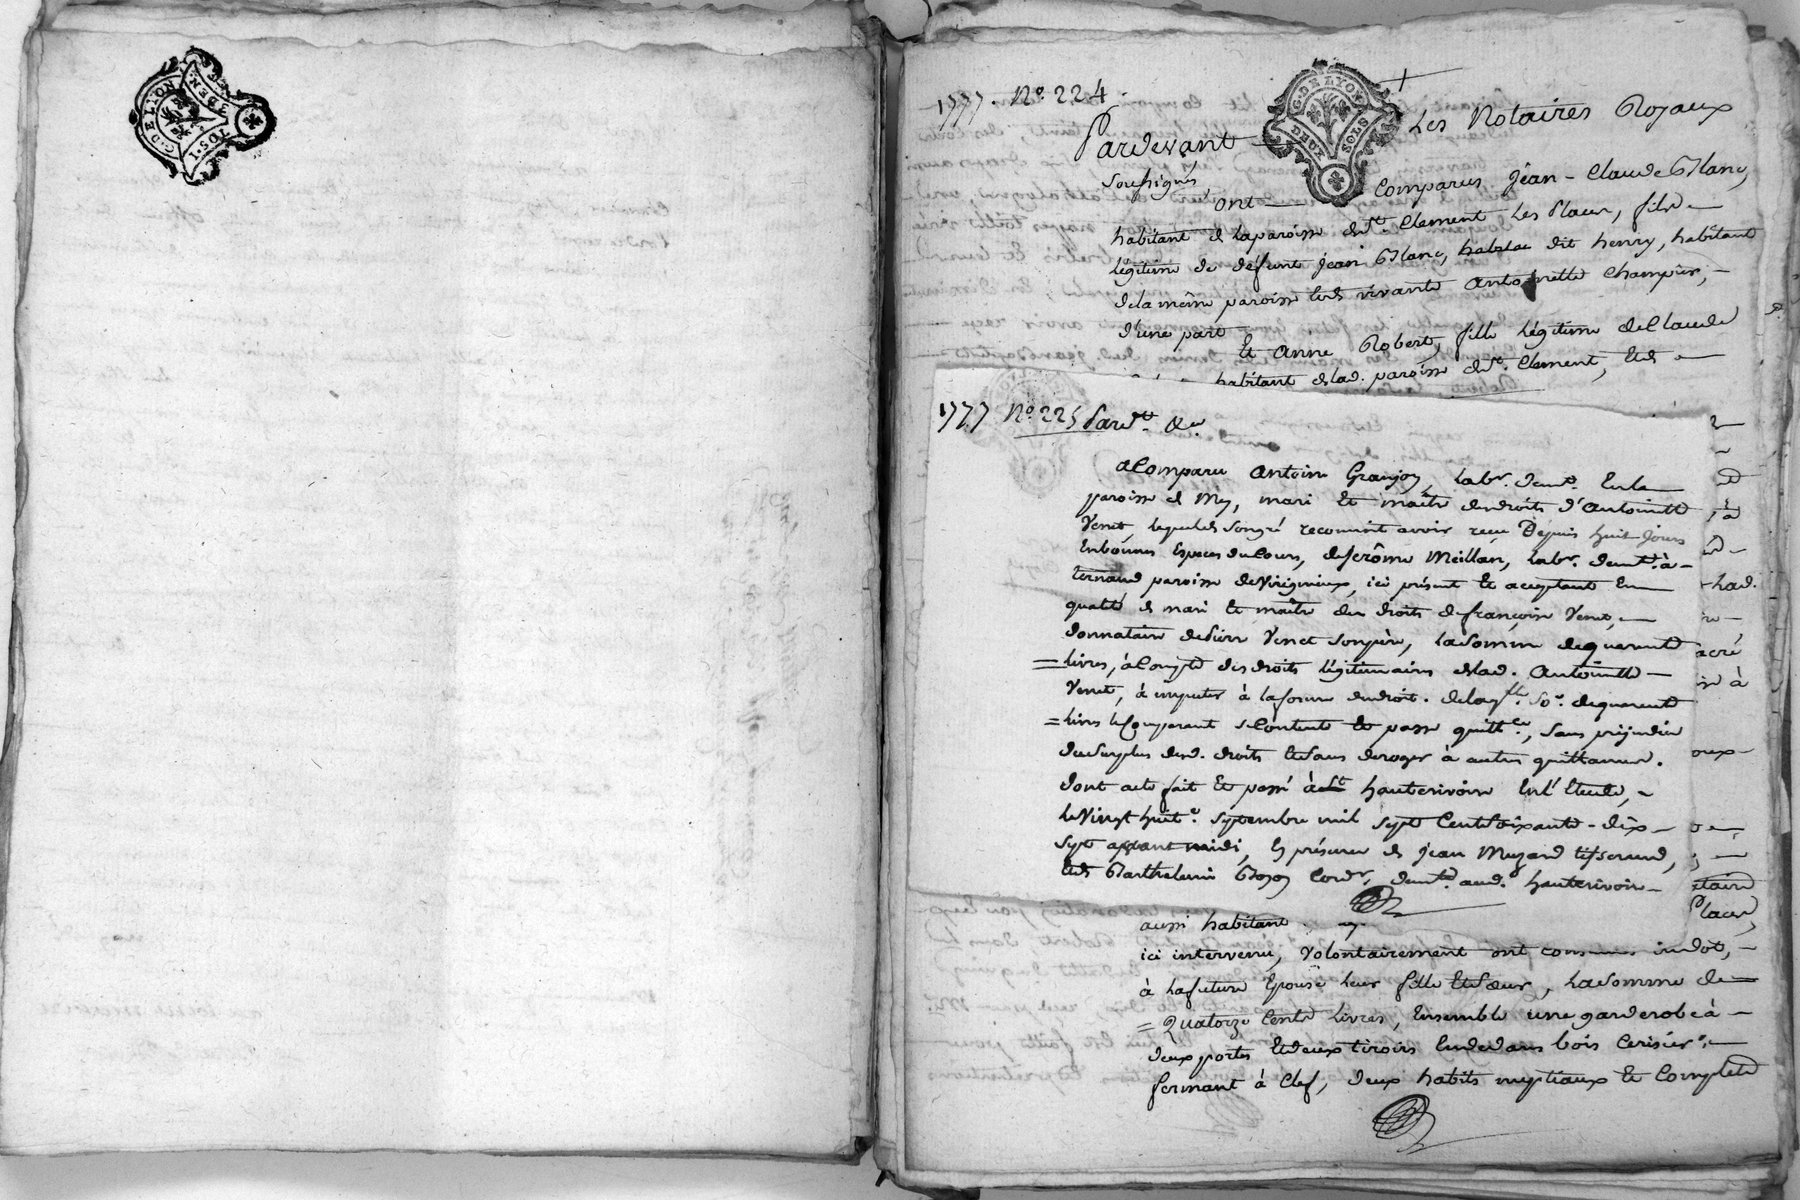 G. DE LYON
1 SOL 3 DEN.
1777. N.º 224
G. DE LYON
DEUX SOLS
Pardevant Les Notaires Royaux
soussignés
ont Comparus Jean-Claude Blanc,
habitant de laparoisse de St. Clement Les places, fils
légitime de défunt jean Blanc, dit henry, habitant
dela même paroisse Et de vivante Antoinette Champier,
d'une part
Et Anne Robert, fille légitime de Claude
habitant de lad. paroisse de St. Clement, Et de
1777 N.º 225 Pard.t &c.
a Comparu Antoine Granjon, lab.r dem.t En la
paroisse de Mys, mari Et maître des droits d'Antoinette
Venet, lequel de Son gré reconnoit avoir reçu Depuis huit jours
En bonnes Especes du Cours, de Jerôme Meillan, lab.r dem.t à
ternand paroisse de Virigneux, ici présent Et acceptant En
qualité de mari Et maître des droits de françoise Venet,
donnataire de Pierre Venet Son père, la Somme de quarante
livres, à Compte des droits légitimaires de lad. Antoinette
Venet, à imputer à la forme du droit. de laq.lle So.e de quarante
livres le Comparant Se Contente Et passe quitt.ce, Sans préjudice
du Surplus desd. droits Et Sans deroger à autres quittances.
dont acte fait Et passé à St hauterivoire En l'Etude,
le Vingt huit.e Septembre mil Sept Cent Soixante-dix-
Sept avant midi, En présence de Jean Muzard tisserand,
Et de Barthelemi Cord.r, dem.t aud. hauterivoire
aussi habitant
ici intervenu, Volontairement ont constitués En dot,
à la future Epouse leur fille Et Sœur, la Somme de
Quatorze Cents livres, Ensemble une garderobe à
deux portes Et deux tiroirs En dedans bois Cerisier,
fermant à Clef, deux habits nuptiaux Et Complets